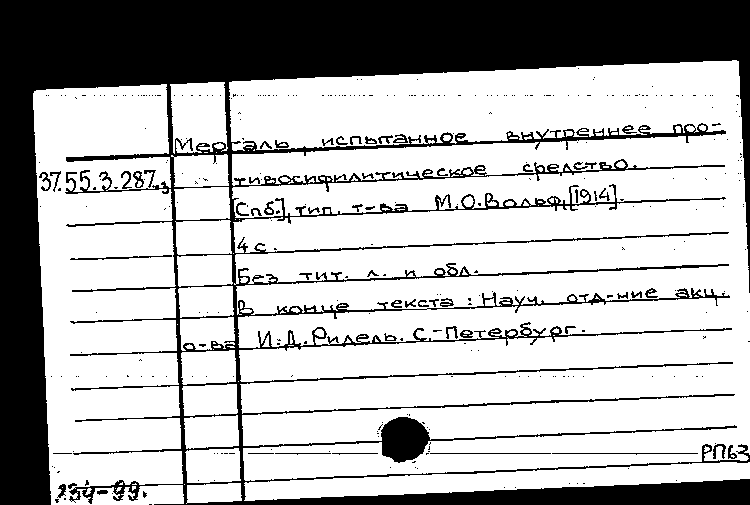 Мергаль, испытанное внутреннее про-
37.55.3.287з тивосифилитическое средство.
[Спб.], тип. т-ва М.О.Вольф, [1914].
4 с.
Без тит. л. и обл.
В конце текста: Науч. отд-ние акц.
о-ва И.Д.Ридель. С.-Петербург.
РПб3
234-99.